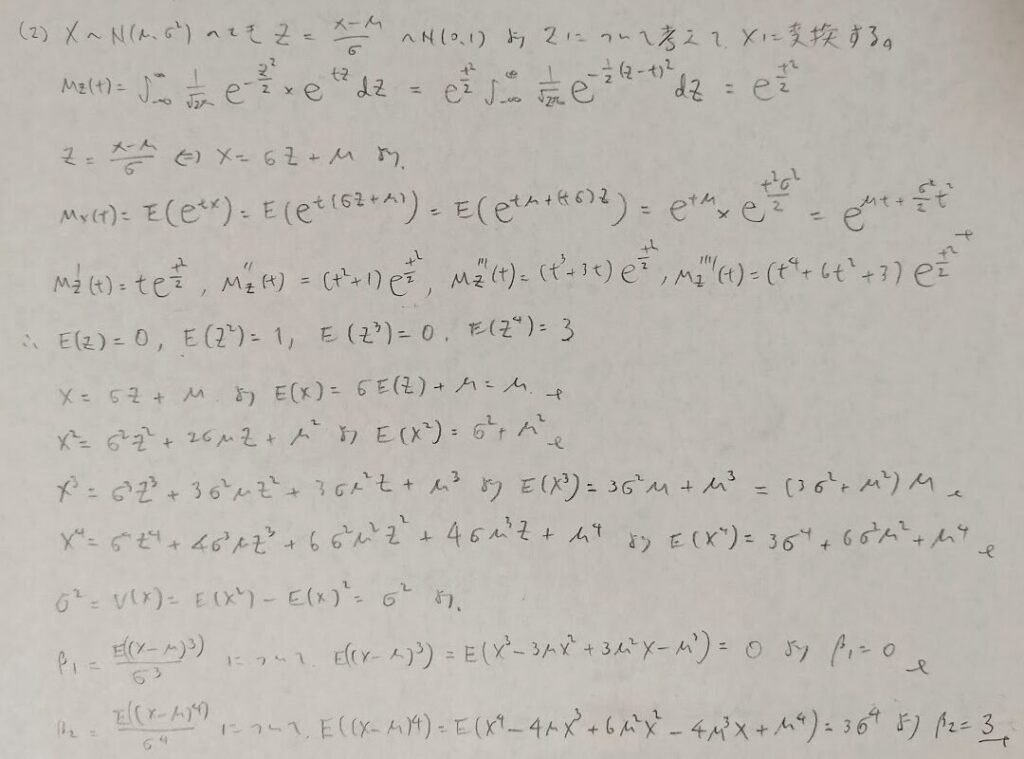 (2) X~N(μ,σ²) のとき Z = (X-μ)/σ ~N(0,1) より Zについて考えて、Xに変換する。
M_Z(t) = ∫_{-∞}^{∞} 1/√2π e^{-z²/2} × e^{tz} dz = e^{t²/2} ∫_{-∞}^{∞} 1/√2π e^{-1/2(z-t)²} dz = e^{t²/2}
Z = (X-μ)/σ ⇔ X = σZ + μ より、
M_X(t) = E(e^{tX}) = E(e^{t(σZ+μ)}) = E(e^{tμ+(tσ)Z}) = e^{tμ} × e^{t²σ²/2} = e^{μt + σ²/2 t²}
M_Z'(t) = t e^{t²/2}, M_Z''(t) = (t²+1) e^{t²/2}, M_Z'''(t) = (t³+3t) e^{t²/2}, M_Z''''(t) = (t⁴+6t²+3) e^{t²/2}
∴ E(Z) = 0, E(Z²) = 1, E(Z³) = 0, E(Z⁴) = 3
X = σZ + μ より E(X) = σE(Z) + μ = μ.
X² = σ²Z² + 2σμZ + μ² より E(X²) = σ² + μ²
X³ = σ³Z³ + 3σ²μZ² + 3σμ²Z + μ³ より E(X³) = 3σ²μ + μ³ = (3σ² + μ²)μ
X⁴ = σ⁴Z⁴ + 4σ³μZ³ + 6σ²μ²Z² + 4σμ³Z + μ⁴ より E(X⁴) = 3σ⁴ + 6σ²μ² + μ⁴
σ² = V(X) = E(X²) - E(X)² = σ² より、
β₁ = E((X-μ)³)/σ³ について、E((X-μ)³) = E(X³ - 3μX² + 3μ²X - μ³) = 0 より β₁ = 0
β₂ = E((X-μ)⁴)/σ⁴ について、E((X-μ)⁴) = E(X⁴ - 4μX³ + 6μ²X² - 4μ³X + μ⁴) = 3σ⁴ より β₂ = 3